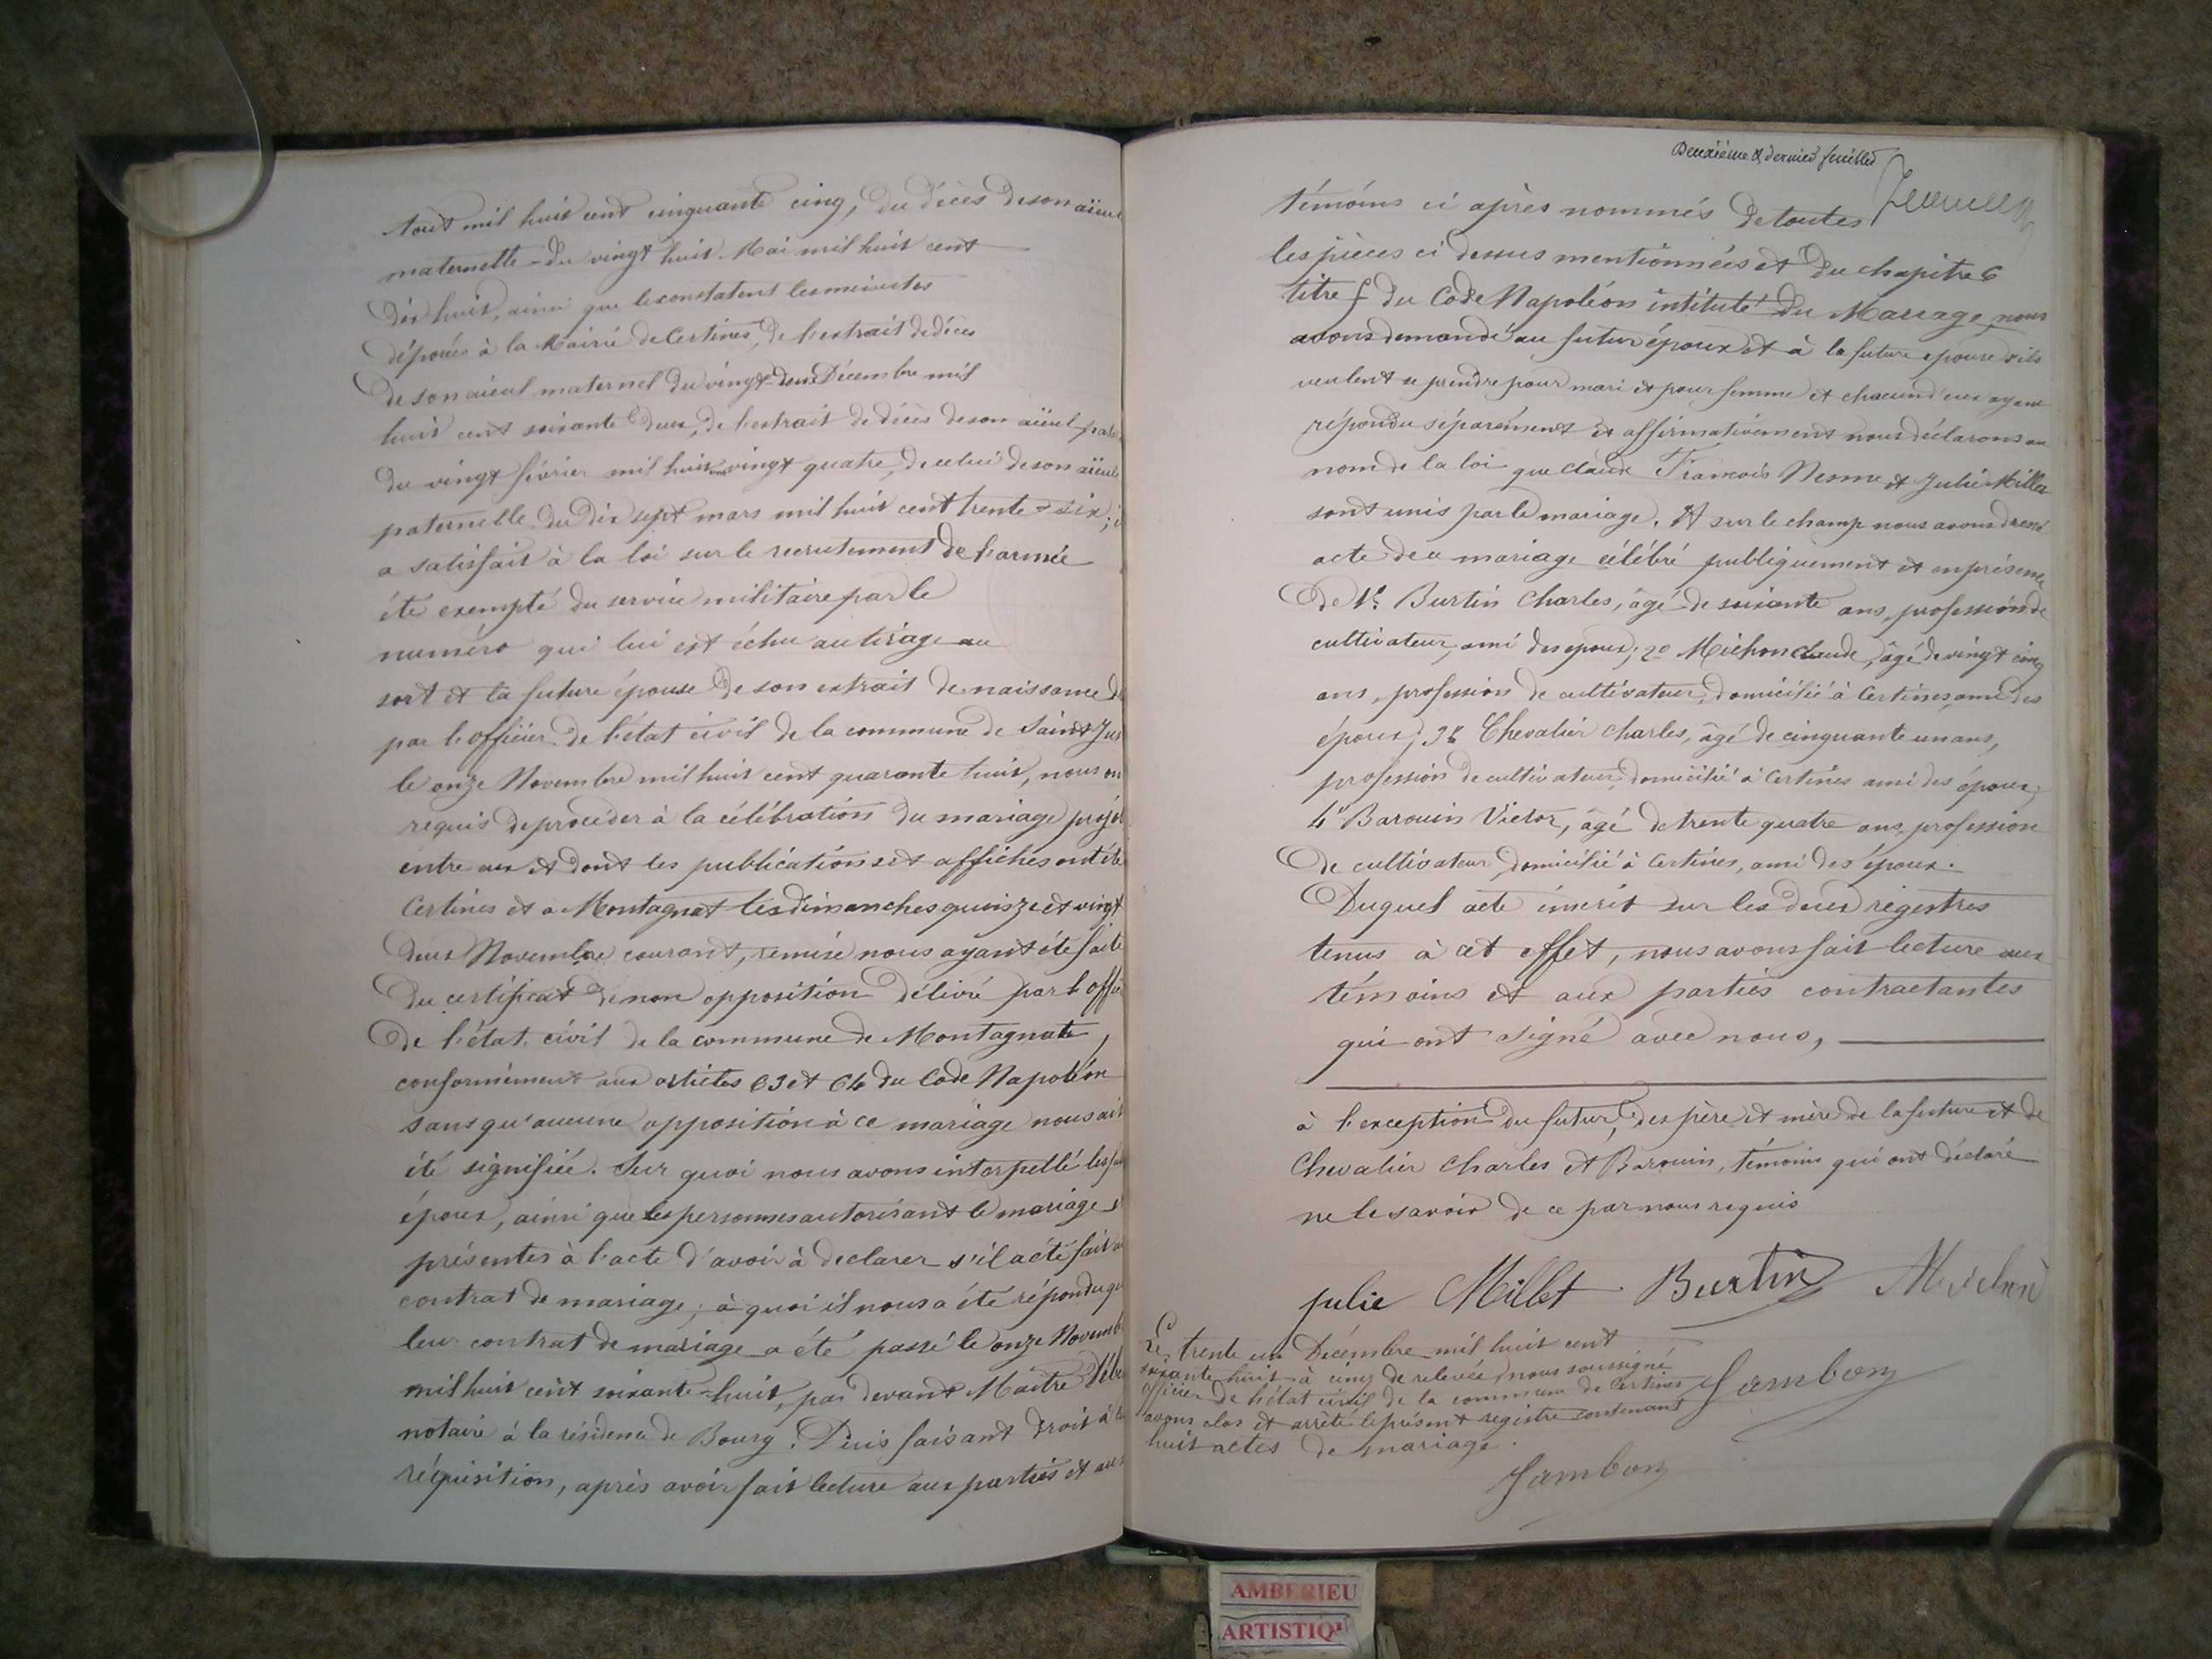 tout mil huit cent cinquante cinq, du décès de son aïeul
maternelle du vingt huit Mai mil huit cent
dix huit, ainsi que le constatent les minutes
déposés à la Mairie de Certines, de l'extrait de déces
de son aieul maternel du vingt deux Décembre mil
huit cent soixante deux, de l'extrait de décès de son aïeul pat
du vingt février mil huit cent vingt quatre, de celui de son aïeule
paternelle du dix sept mars mil huit cent trente-six;
a satisfait à la loi sur le recrutement de l'armée
été exempté du service militaire par le
numéro qui lui est échu au tirage au
sort et la future épouse de son extrait de naissance d
par l'officier de l'état civil de la commune de Saint Jus
le onze Novembre mil huit cent quarante huit, nous on
requis de procéder à la célébration du mariage projet
entre eux et dont les publications et affiches ont été
Certines et a Montagnat les dimanches quinze et vingt
deux Novembre courant, remise nous ayant été faite
du certificat de non opposition délivré par l'offic
de l'état civil de la commune de Montagnat,
conformément aux articles 63 et 64 du Code Napoléon
sans qu'aucune opposition à ce mariage nous ait
été signifiée. Sur quoi nous avons interpellé les fu
époux, ainsi que les personnes autorisant le mariage
présentes à l'acte d'avoir à declarer s'il a été fait
contrat de mariage, à quoi il nous a été répondu qu
leur contrat de mariage a été passé le onze Novemb
mil huit cent soixante-huit, par devant Maître
notaire à la résidence de Bourg. Puis faisant droit à
réquisition, après avoir fait lecture aux parties et aux
Deuxième & dernier feuillet
témoins ci après nommés de toutes
les pièces ci dessus mentionnées et du chapitre 6
titre 5 du Code Napoléon intitulé du Mariage, nous
avons demandé au futur époux et à la future épouse s'ils
veulent se prendre pour mari et pour femme et chacun d'eux ayant
répondu séparément et affirmativement nous déclarons au
nom de la loi que Claude François Nesme et Julie Millet
sont unis par le mariage. Et sur le champ nous avons dressé
acte de ce mariage célébré publiquement et en présence
de 1º Burtin Charles, âgé de soixante ans, profession de
cultivateur, ami des époux; 2º Michon Claude, âgé de vingt cinq
ans, profession de cultivateur, domicilié à Certines, ami des
époux; 3º Chevalier Charles, âgé de cinquante un ans,
profession de cultivateur, domicilié à Certines ami des époux,
4º Barouin Victor, âgé de trente quatre ans, profession
de cultivateur, domicilié à Certines, ami des époux.
Duquel acte inscrit sur les deux régistres
tenus à cet effet, nous avons fait lecture aux
témoins et aux parties contractantes
qui ont signé avec nous,
à l'exception du futur, des père et mère de la future et de
Chevalier Charles et Barouin, témoins qui ont déclaré
ne le savoir de ce par nous requis
julie Millet Burtin Michon
Le trente un Décembre mil huit cent
soixante huit à cinq de relevée, nous soussigné
officier de l'état civil de la commune de Certines
avons clos et arrêté le présent registre contenant
huit actes de mariage.
Jambon
Jambon
AMBERIEU
ARTISTIQ